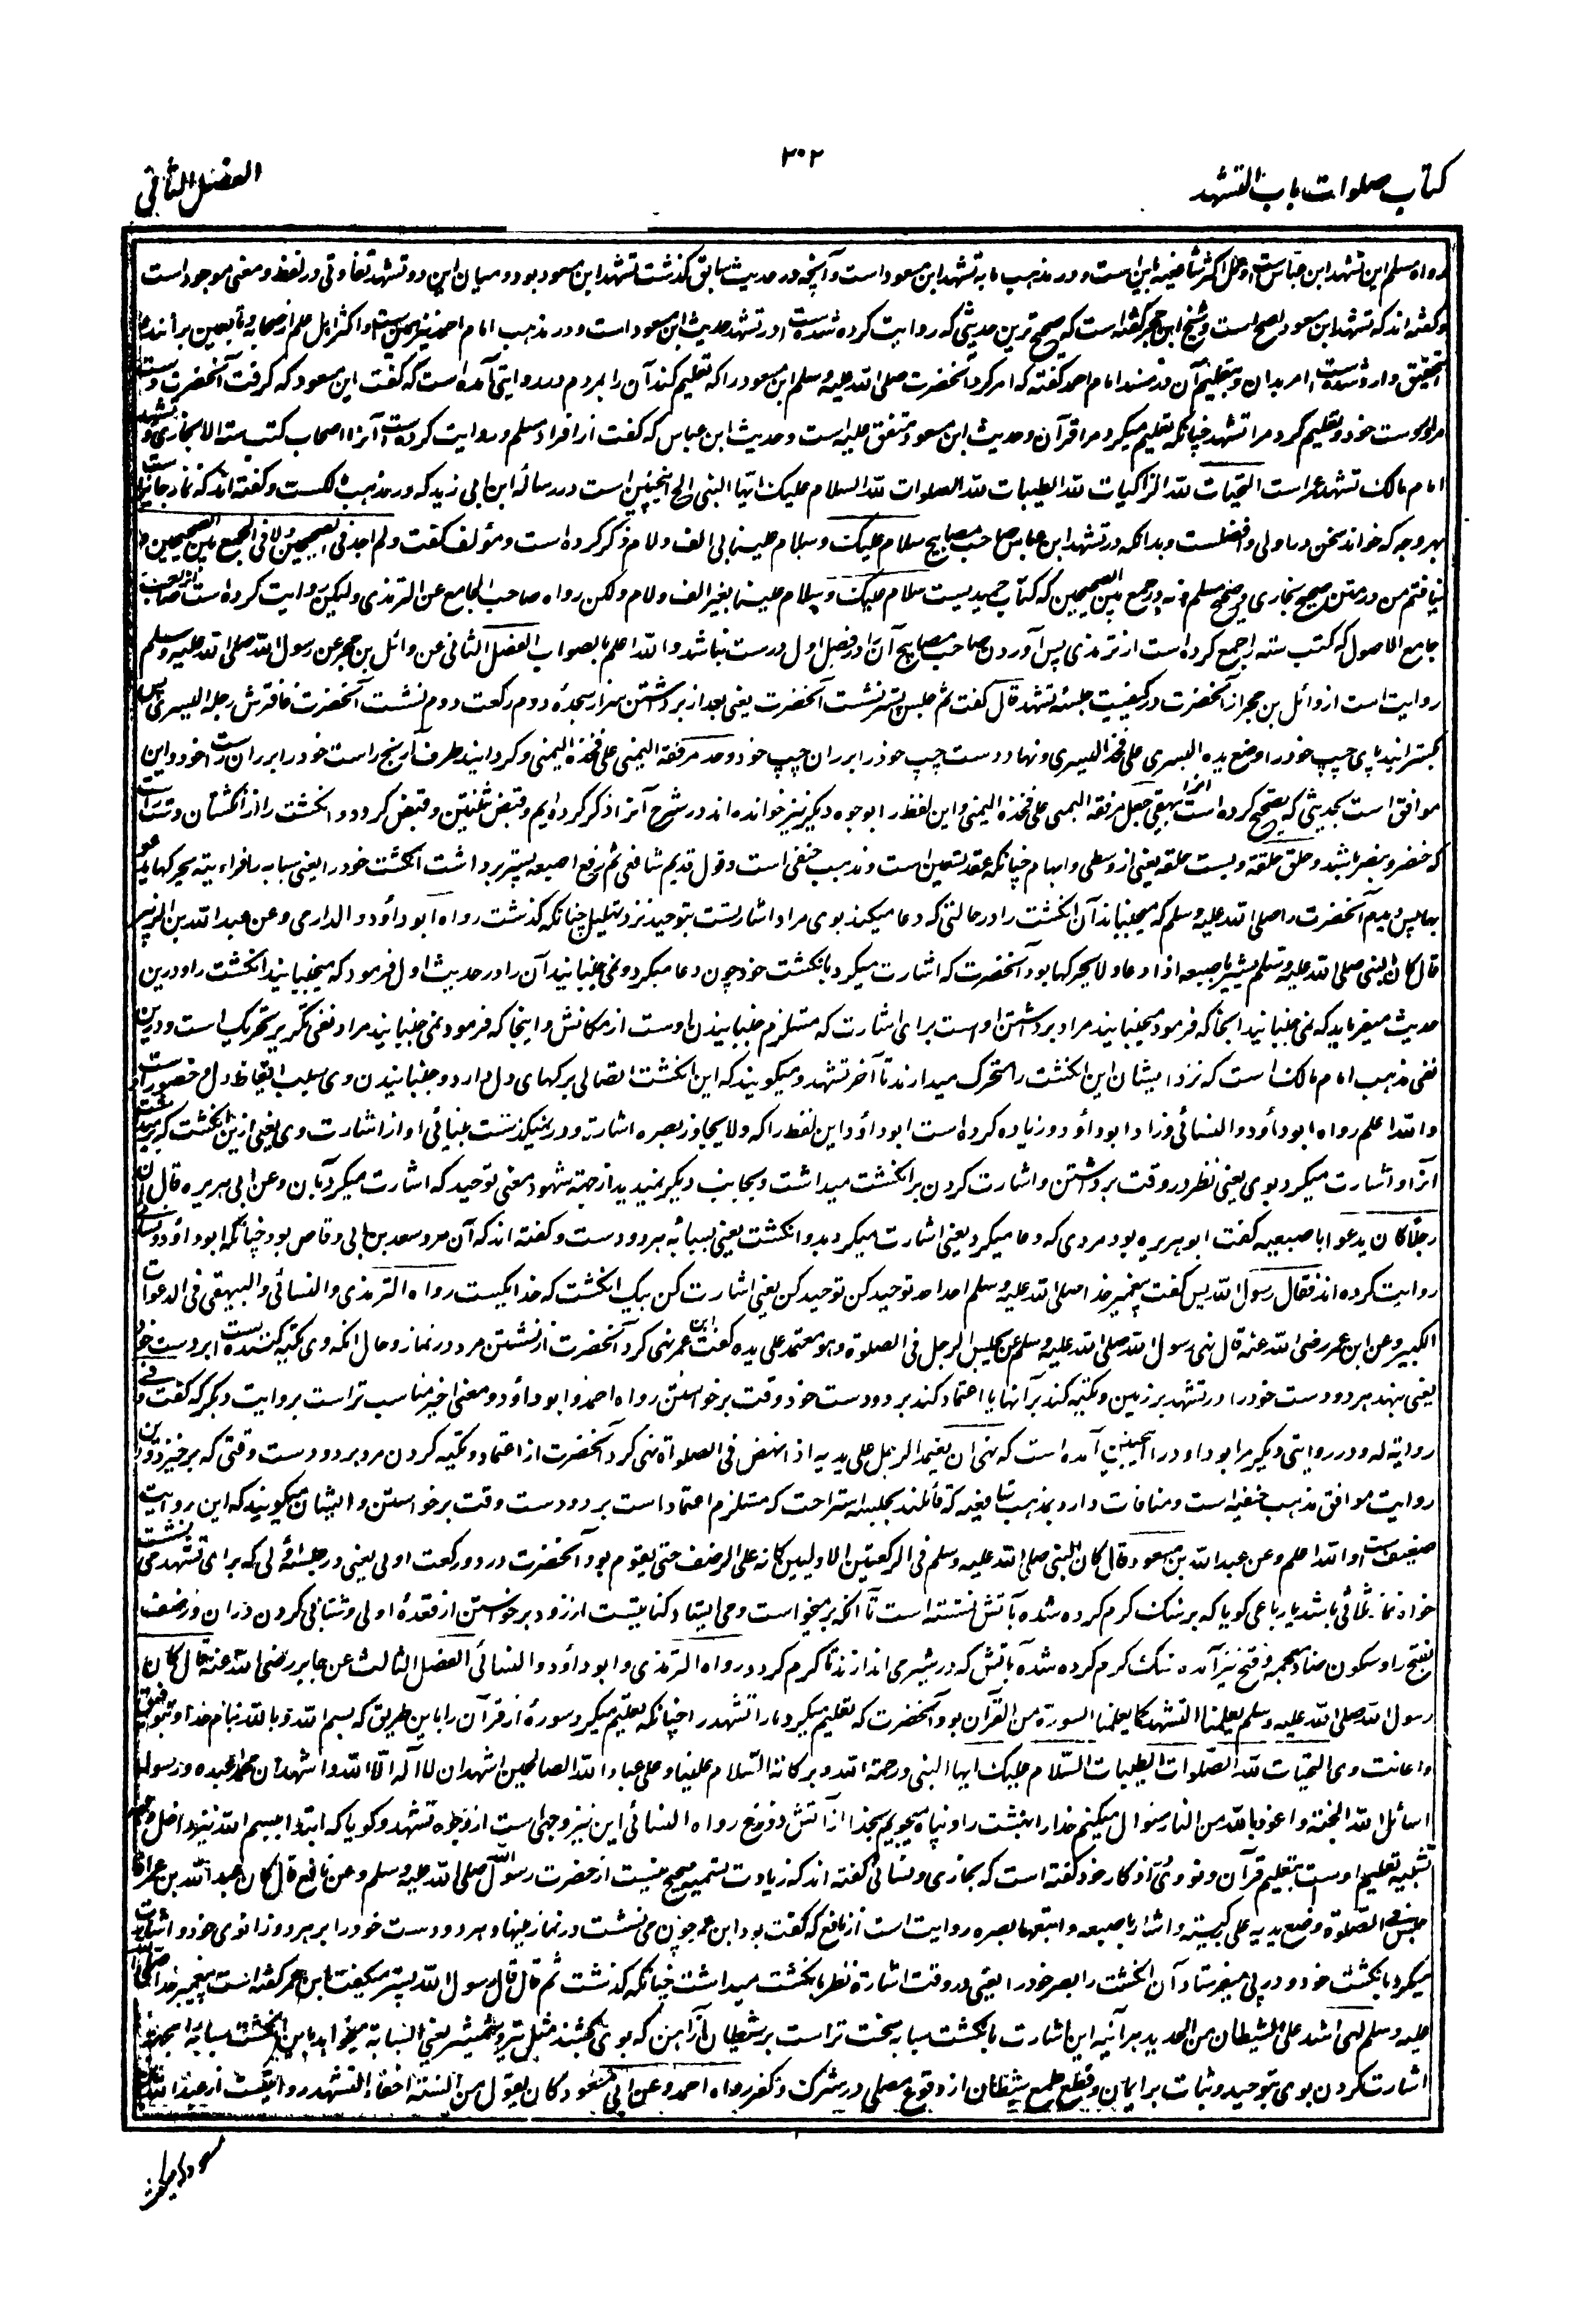 ۳۰۲
کتاب صلوات باب التشهد
الفصل الثانی
رواه مسلم این تشهد ابن عباس است و عمل اکثر شافعیه باین است و در مذهب ما به تشهد ابن مسعود است و آنچه در حدیث سابق گذشت تشهد ابن مسعود بود و میان این دو تشهد تفاوتی در لفظ و معنی موجود است
و گفته‌اند که تشهد ابن مسعود اصح است و شیخ ابن حجر گفته است که صحیح ترین حدیثی که روایت کرده شده است در تشهد حدیث ابن مسعود است و در مذهب امام احمد نیز همین است و اکثر اهل علم از صحابه و تابعین برآنند
بتحقیق وارد شده است امر بدان و بتعلیم آن در مسند امام احمد گفته که امر کرد آنحضرت صلی الله علیه و سلم ابن مسعود را که تعلیم کند آن را بمردم و در روایتی آمده است که گفت ابن مسعود که گرفت آنحضرت دست
مرا بدست خود و تعلیم کرد مرا تشهد چنانکه تعلیم میکرد مرا قرآن و حدیث ابن مسعود متفق علیه است و حدیث ابن عباس که گفت از افراد مسلم و روایت کرده است آنرا اصحاب کتب سته الا بخاری و تشهد
امام مالک تشهد عمر است التحیات لله الزاکیات لله الطیبات لله الصلوات لله السلام علیک ایها النبی الخ اینچنین است در رساله ابن ابی زید که در مذهب مالکست و گفته‌اند که نماز جائز است
بهر وجه که خواند سخن در اولی و افضلست و بدانکه در تشهد ابن عباس صاحب مصابیح سلام علیک و سلام علینا بی الف و لام ذکر کرده است و مؤلف گفت و لم اجد فی الصحیحین و لا فی الجمع بین الصحیحین
نیافتم من در متن صحیح بخاری و صحیح مسلم و نه در جمع بین الصحیحین که کتاب حمیدیست سلام علیک و سلام علینا بغیر الف و لام و لکن رواه صاحب الجامع عن الترمذی و لیکن روایت کرده است آنرا صاحب
جامع الاصول که کتب سته را جمع کرده است از ترمذی پس آوردن صاحب مصابیح آن را در فصل اول درست نباشد والله اعلم بالصواب الفصل الثانی عن وائل بن حجر عن رسول الله صلی الله علیه و سلم
روایت است از وائل بن حجر از آنحضرت در کیفیت جلسه تشهد قال گفت ثم جلس پستر نشست آنحضرت یعنی بعد از برداشتن سر از سجده دوم رکعت دوم نشست آنحضرت فافترش رجله الیسری پس
بگسترانید پای چپ خود را و وضع یده الیسری علی فخذه الیسری و نهاد دست چپ خود را بر ران چپ خود و حد مرفقه الیمنی علی فخذه الیمنی و گردانید طرف آرنج راست خود را بر ران راست خود و این
موافق است بحدیثی که تصحیح کرده است آنرا بیهقی جعل مرفقه الیمنی علی فخذه الیمنی و این لفظ را بوجوه دیگر نیز خوانده‌اند در شرح آنرا ذکر کرده‌ایم و قبض ثنتین و قبض کرد دو انگشت را از انگشتان دست راست
که خنصر و بنصر باشد و حلق حلقة و بست حلقه یعنی از وسطی و ابهام چنانکه عقد تسعین است و مذهب حنفی است و قول قدیم شافعی ثم رفع اصبعه پستر برداشت انگشت خود را یعنی سبابه را فراءیته یحرکها یدعو
بها پس دیدم آنحضرت را صلی الله علیه وسلم که میجنباند آن انگشت را در حالتی که دعا میکند بوی مراد اشارتست بتوحید نزد تهلیل چنانکه گذشت رواه ابو داؤد و الدارمی و عن عبد الله بن الزبیر
قال کان النبی صلی الله علیه وسلم یشیر باصبعه اذا دعا و لا یحرکها بود آنحضرت که اشارت میکرد بانگشت خود چون دعا میکرد و نمی جنبانید آن را در حدیث اول فرمود که میجنبانید انگشت را و درین
حدیث میفرماید که نمی جنبانید آنجا که فرمود میجنبانید مراد برداشتن اوست برای اشارت که مستلزم جنبانیدن اوست از مکانش و اینجا که فرمود نمی جنبانید مراد نفی تکریر تحریک است و درین
نفی مذهب امام مالک است که نزد ایشان این انگشت را متحرک میدارند تا آخر تشهد و میگویند که این انگشت اتصالی برگهای دل دارد و جنبانیدن وی سبب ایقاظ دل و حضور اوست
والله اعلم رواه ابو داؤد و النسائی و زاد ابو داؤد و زیاده کرده است ابو داؤد این لفظ را که ولا یجاوز بصره اشارته و در نمیگذشت بینائی او از اشارت وی یعنی از آن انگشت که برمیداشت
آنرا و اشارت میکرد بوی یعنی نظر در وقت برداشتن و اشارت کردن بر انگشت میداشت و بجانب دیگر نمیدید از جهة شهود معنی توحید که اشارت میکرد بآن و عن ابی هریره قال ان
رجلا کان یدعو باصبعیه گفت ابو هریره بود مردی که دعا میکرد یعنی اشارت میکرد بدو انگشت یعنی بسبابه هر دو دست و گفته‌اند که آن مرد سعد بن ابی وقاص بود چنانکه ابو داؤد و نسائی
روایت کرده‌اند فقال رسول الله پس گفت پیغمبر خدا صلی الله علیه و سلم احد احد توحید کن توحید کن یعنی اشارت کن بیک انگشت که خدا یکیست رواه الترمذی و النسائی و البیهقی فی الدعوات
الکبیر و عن ابن عمر رضی الله عنه قال نهی رسول الله صلی الله علیه وسلم ان یجلس الرجل فی الصلوة وهو معتمد علی یده گفت ابن عمر نهی کرد آنحضرت از نشستن مرد در نماز و حال آنکه وی تکیه کننده است بر دست خود
یعنی بنهد هر دو دست خود را در تشهد بر زمین و تکیه کند بر آنها یا اعتماد کند بر دو دست خود وقت برخواستن رواه احمد و ابو داؤد و معنی اخیر مناسب تر است بروایت دیگر که گفت و فی
روایة له و در روایتی دیگر مر ابو داود را اینچنین آمده است که نهی ان یعتمد الرجل علی یدیه اذا نهض فی الصلوة نهی کرد آنحضرت از اعتماد و تکیه کردن مرد بر دو دست وقتی که برخیزد و این
روایت موافق مذهب حنفیه است و منافات دارد بمذهب شافعیه که قائلند بجلسه استراحت که مستلزم اعتماد است بر دو دست وقت برخواستن و ایشان میگویند که این روایت
ضعیف است والله اعلم و عن عبد الله بن مسعود قال کان النبی صلی الله علیه وسلم فی الرکعتین الاولیین کانه علی الرضف حتی یقوم بود آنحضرت در دو رکعت اولی یعنی در جلسه اولی که برای تشهد می نشست
خواه نماز ثلاثی باشد یا رباعی گویا که بر سنگ گرم کرده شده بآتش نشسته است تا آنکه برمیخواست و می ایستاد کنایتست از زود برخواستن از قعده اولی و شتابی کردن در آن و رضف
بفتح را و سکون ضاد معجمه و فتح نیز آمده سنگ گرم کرده شده بآتش که در شیر می اندازند تا گرم گردد رواه الترمذی و ابو داؤد و النسائی الفصل الثالث عن جابر رضی الله عنه قال کان
رسول الله صلی الله علیه وسلم یعلمنا التشهد کما یعلمنا السورة من القرآن بود آنحضرت که تعلیم میکرد ما را تشهد را چنانکه تعلیم میکرد سورة از قرآن را باین طریق که بسم الله و بالله بنام خدا و بتوفیق
و اعانت وی التحیات لله الصلوات الطیبات السلام علیک ایها النبی ورحمة الله وبرکاته السلام علینا وعلی عباد الله الصالحین اشهد ان لا اله الا الله واشهد ان محمدا عبده ورسوله
اسائل الله الجنة واعوذ بالله من النار سؤال میکنم خدا را بهشت را و پناه میجویم بخدا از آتش دوزخ رواه النسائی این نیز وجهی است از وجوه تشهد و گویا که ابتدا ببسم الله نیز داخل وجه
تشبیه تعلیم اوست بتعلیم قرآن و نووی در اذکار خود گفته است که بخاری و نسائی گفته‌اند که زیادت تسمیه صحیح نیست از حضرت رسول الله صلی الله علیه وسلم و عن نافع قال کان عبد الله بن عمر اذا
جلس فی الصلوة وضع یدیه علی رکبتیه و اشار باصبعه و اتبعها بصره روایت است از نافع که گفت بود ابن عمر چون می نشست در نماز مینهاد هر دو دست خود را بر هر دو زانوی خود و اشارت
میکرد بانگشت خود و در پی میفرستاد آن انگشت را بصر خود را یعنی در وقت اشارة نظر بانگشت میداشت چنانکه گذشت ثم قال قال رسول الله پستر میگفت ابن عمر گفته است پیغمبر خدا صلی الله
علیه وسلم لهی اشد علی الشیطان من الحدید هر آئینه این اشارت بانگشت سبابه سخت تر است بر شیطان از آهن که بوی کشند مثل تیر و شمشیر یعنی السبابة میخواهد باین انگشت سبابه
اشارت کردن بوی بتوحید و ثبات بر ایمان و قطع طمع شیطان از وقوع مصلی در شرک و کفر رواه احمد و عن ابن مسعود کان یقول من السنة اخفاء التشهد روایتست از عبد الله
مسعود